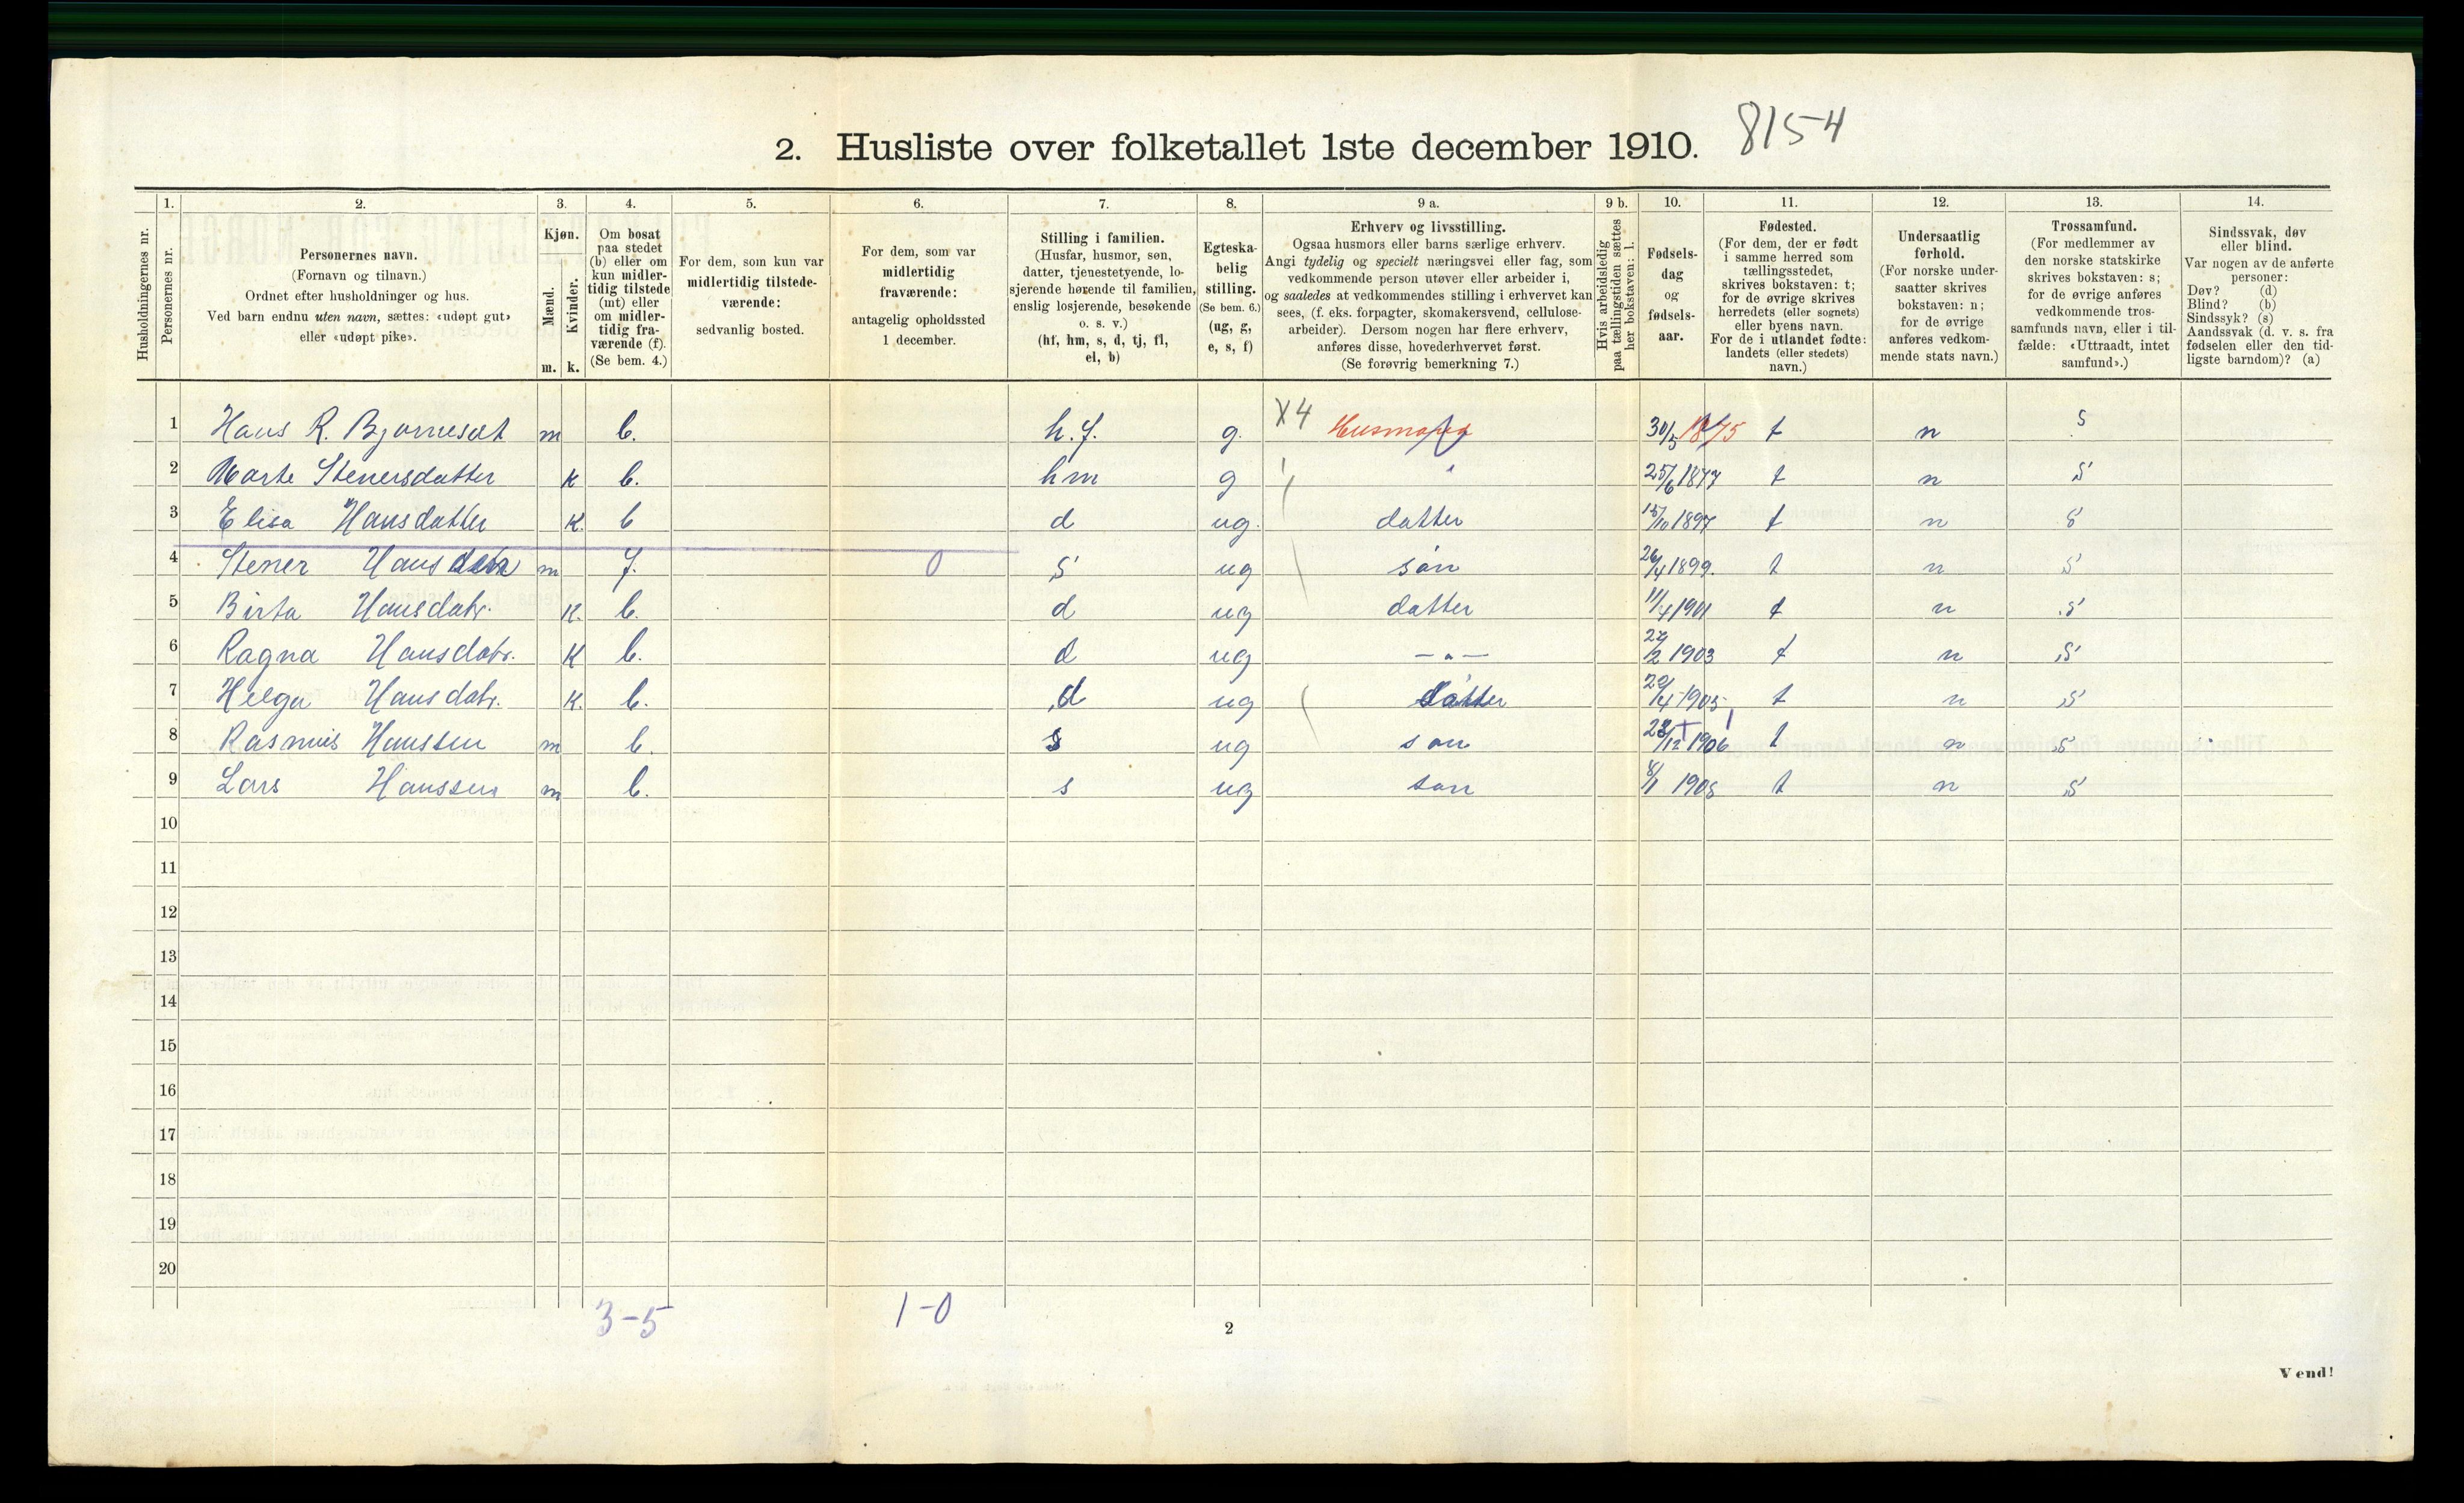 2. Husliste over folketallet 1ste december 1910. 8154
1. 2. 3. 4. 5. 6. 7. 8. 9 a. 9 b. 10. 11. 12. 13. 14.
Husholdningernes nr.
Personernes nr.
Personernes navn.
(Fornavn og tilnavn.)
Ordnet efter husholdninger og hus.
Ved barn endnu uten navn, sættes: «udøpt gut»
eller «udøpt pike».
Kjøn.
Mænd.
Kvinder.
m. k.
Om bosat
paa stedet
(b) eller om
kun midler-
tidig tilstede
(mt) eller
om midler-
tidig fra-
værende (f).
(Se bem. 4.)
For dem, som kun var
midlertidig tilstede-
værende:
sedvanlig bosted.
For dem, som var
midlertidig
fraværende:
antagelig opholdssted
1 december.
Stilling i familien.
(Husfar, husmor, søn,
datter, tjenestetyende, lo-
sjerende hørende til familien,
enslig losjerende, besøkende
o. s. v.)
(hf, hm, s, d, tj, fl,
el, b)
Egteska-
belig
stilling.
(Se bem. 6.)
(ug, g,
e, s, f)
Erhverv og livsstilling.
Ogsaa husmors eller barns særlige erhverv.
Angi tydelig og specielt næringsvei eller fag, som
vedkommende person utøver eller arbeider i,
og saaledes at vedkommendes stilling i erhvervet kan
sees, (f. eks. forpagter, skomakersvend, cellulose-
arbeider). Dersom nogen har flere erhverv,
anføres disse, hovederhvervet først.
(Se forøvrig bemerkning 7.)
Hvis arbeidsledig
paa tællingstiden sættes
her bokstaven: l.
Fødsels-
dag
og
fødsels-
aar.
Fødested.
(For dem, der er født
i samme herred som
tællingsstedet,
skrives bokstaven: t;
for de øvrige skrives
herredets (eller sognets)
eller byens navn.
For de i utlandet fødte:
landets (eller stedets)
navn.)
Undersaatlig
forhold.
(For norske under-
saatter skrives
bokstaven: n;
for de øvrige
anføres vedkom-
mende stats navn.)
Trossamfund.
(For medlemmer av
den norske statskirke
skrives bokstaven: s;
for de øvrige anføres
vedkommende tros-
samfunds navn, eller i til-
fælde: «Uttraadt, intet
samfund».)
Sindssvak, døv
eller blind.
Var nogen av de anførte
personer:
Døv? (d)
Blind? (b)
Sindssyk? (s)
Aandssvak (d. v. s. fra
fødselen eller den tid-
ligste barndom)? (a)
1 Hans R. Bjørneset m b. h.f. g. X4 Husmand 30/5 1875 t n s
2 Marte Stenersdatter k b. hm g 25/6 1877 t n s
3 Elisa Hansdatter k. b d ug. datter 15/10 1897 t n s
4 Stener Hanssen m f. 0 s ug søn 26/4 1899. t n s
5 Birta Hansdatr. k. b. d ug datter 11/4 1901 t n s
6 Ragna Hansdatr. k b. d ug —"— 27/2 1903 t n s
7 Helga Hansdatr. k. b. d ug datter 20/4 1905 t n s
8 Rasmus Hanssen m b. s ug søn 28/12 1906 t n s
9 Lars Hanssen m b. s ug søn 8/1 1908 t n s
10
11
12
13
14
15
16
17
18
19
20
3-5 1-0
2
Vend!